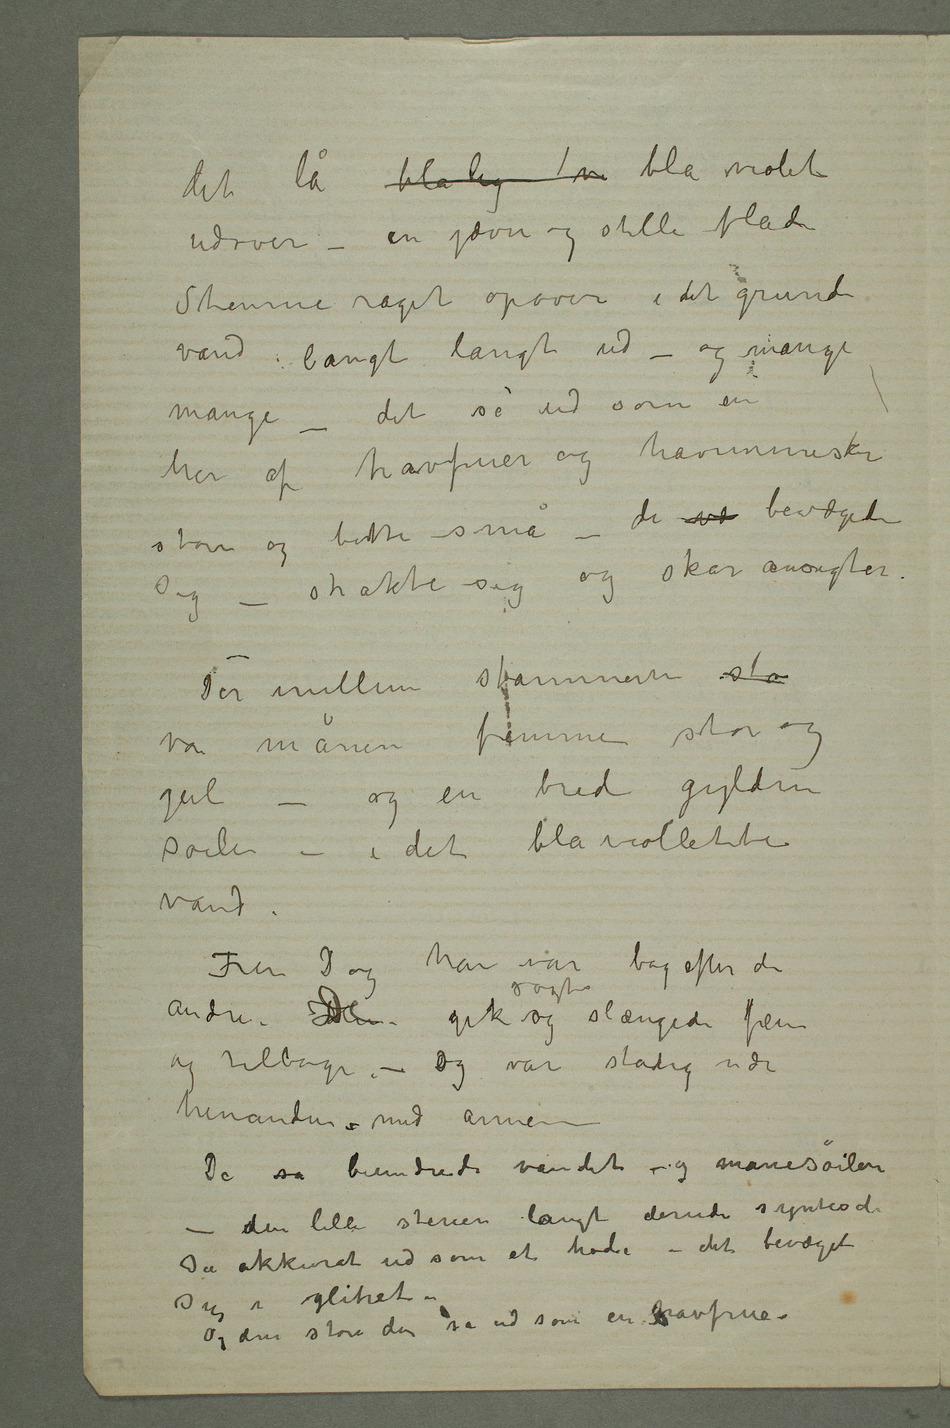 det lå blålig bla violet
udover – en jævn og stille flade
Stenene raget opover i det grunde
vand langt langt ud – og mange
mange – det så ud som en
hær af havfruer og havmennesker
store og bitte små – de bevægede
sig – strakte sig og skar ansigter.
Der imellem stammerne sto
var månen femme stor og
gul – og en bred gylden
søile – i det bla viollette
vand.
Fru D og han var bag efter de
andre. gik og slængede frem
sagte
og tilbage. – Og var stadig nær
hinanden. med armene
De sa beundrede vandet og manesöilen
– den lille stenen langt derude syntes de
Så akkurat ud som et hode – det bevæget
sig i glitret –
Og den store der så ud som en havfrue.